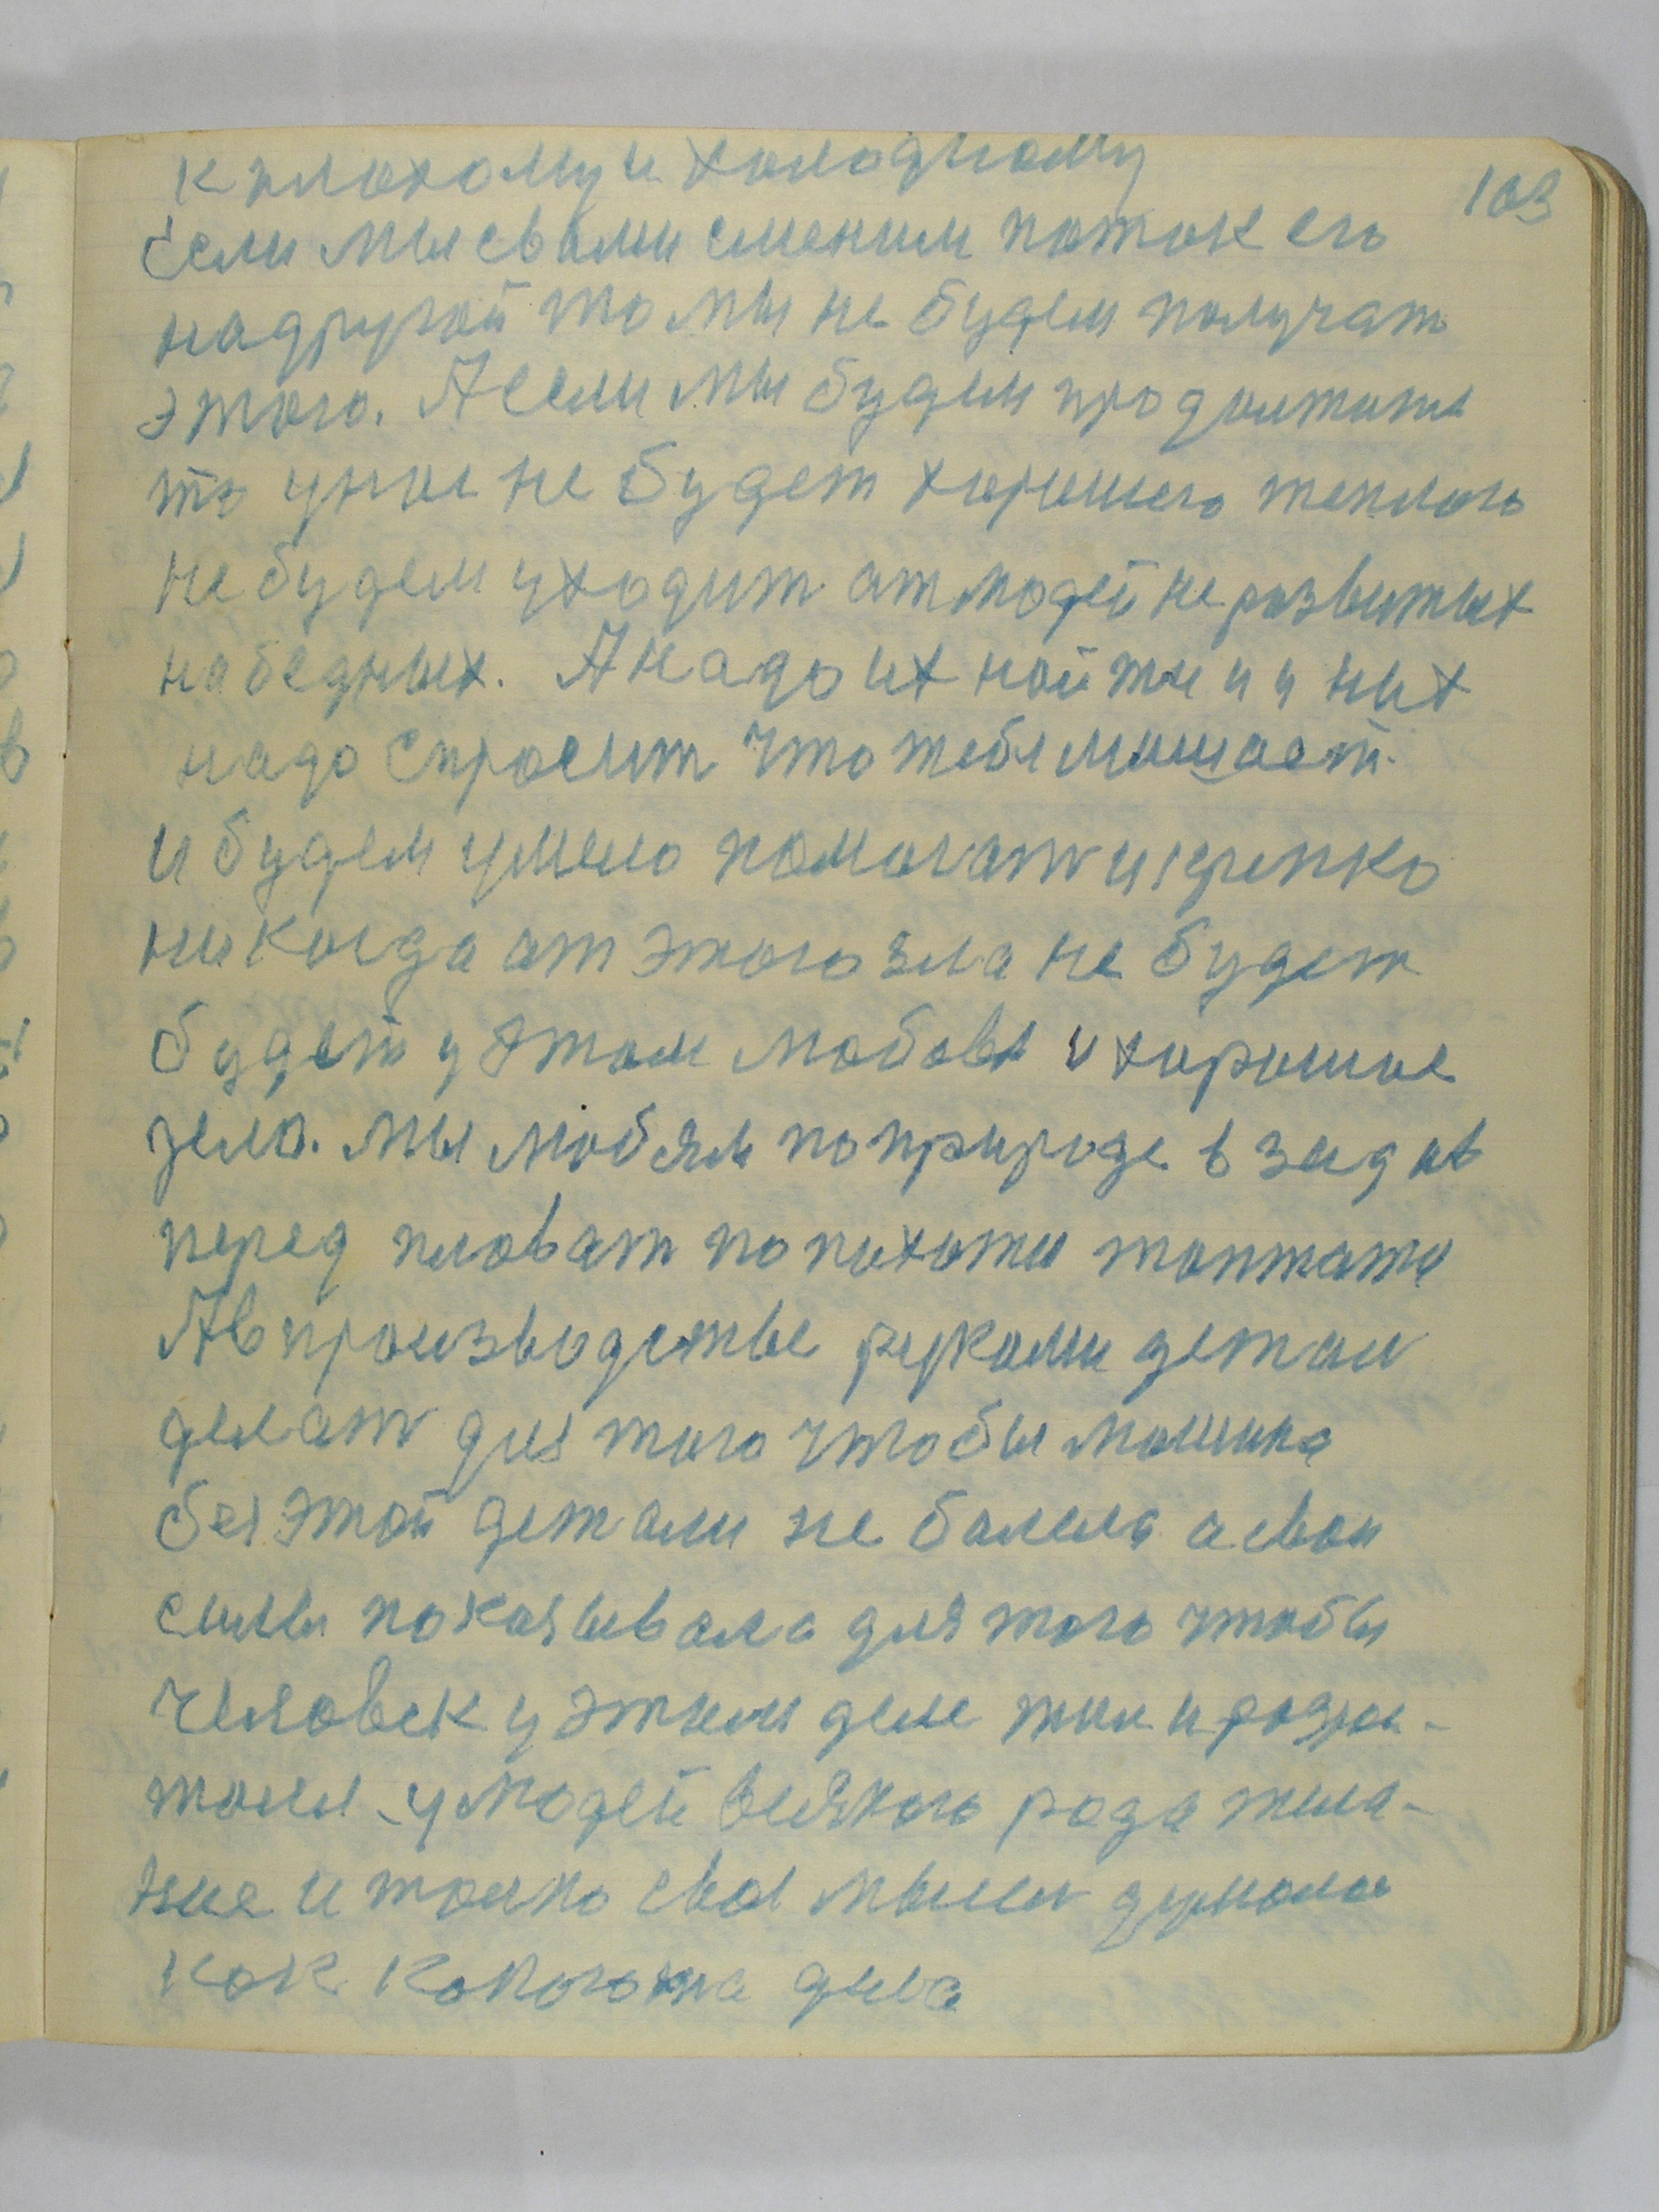 103
к плохому и холодному
Если мы свами сменим поток его
надругой то мы не будем получат
этого. А если мы будем продолжать
то унас не будет хорошего теплого
не будем уходит от людей не развитых
на бедных. А надо их найти и у них
надо спросит что тебе мешает
и будем умело помогат и крепко
никогда от этого зла не будет
будет у этом любовь и хорошое
дело. мы любям поприроде в зад ив
перед плават попихоти топтати
А в производстве руками детали
делат для того чтобы машина
без этой детали не болела а свои
силы показывала для того чтобы
человек у этим деле жил и
у людей всякого рода жела-
ние и только свои мысли думали
как какого на дела